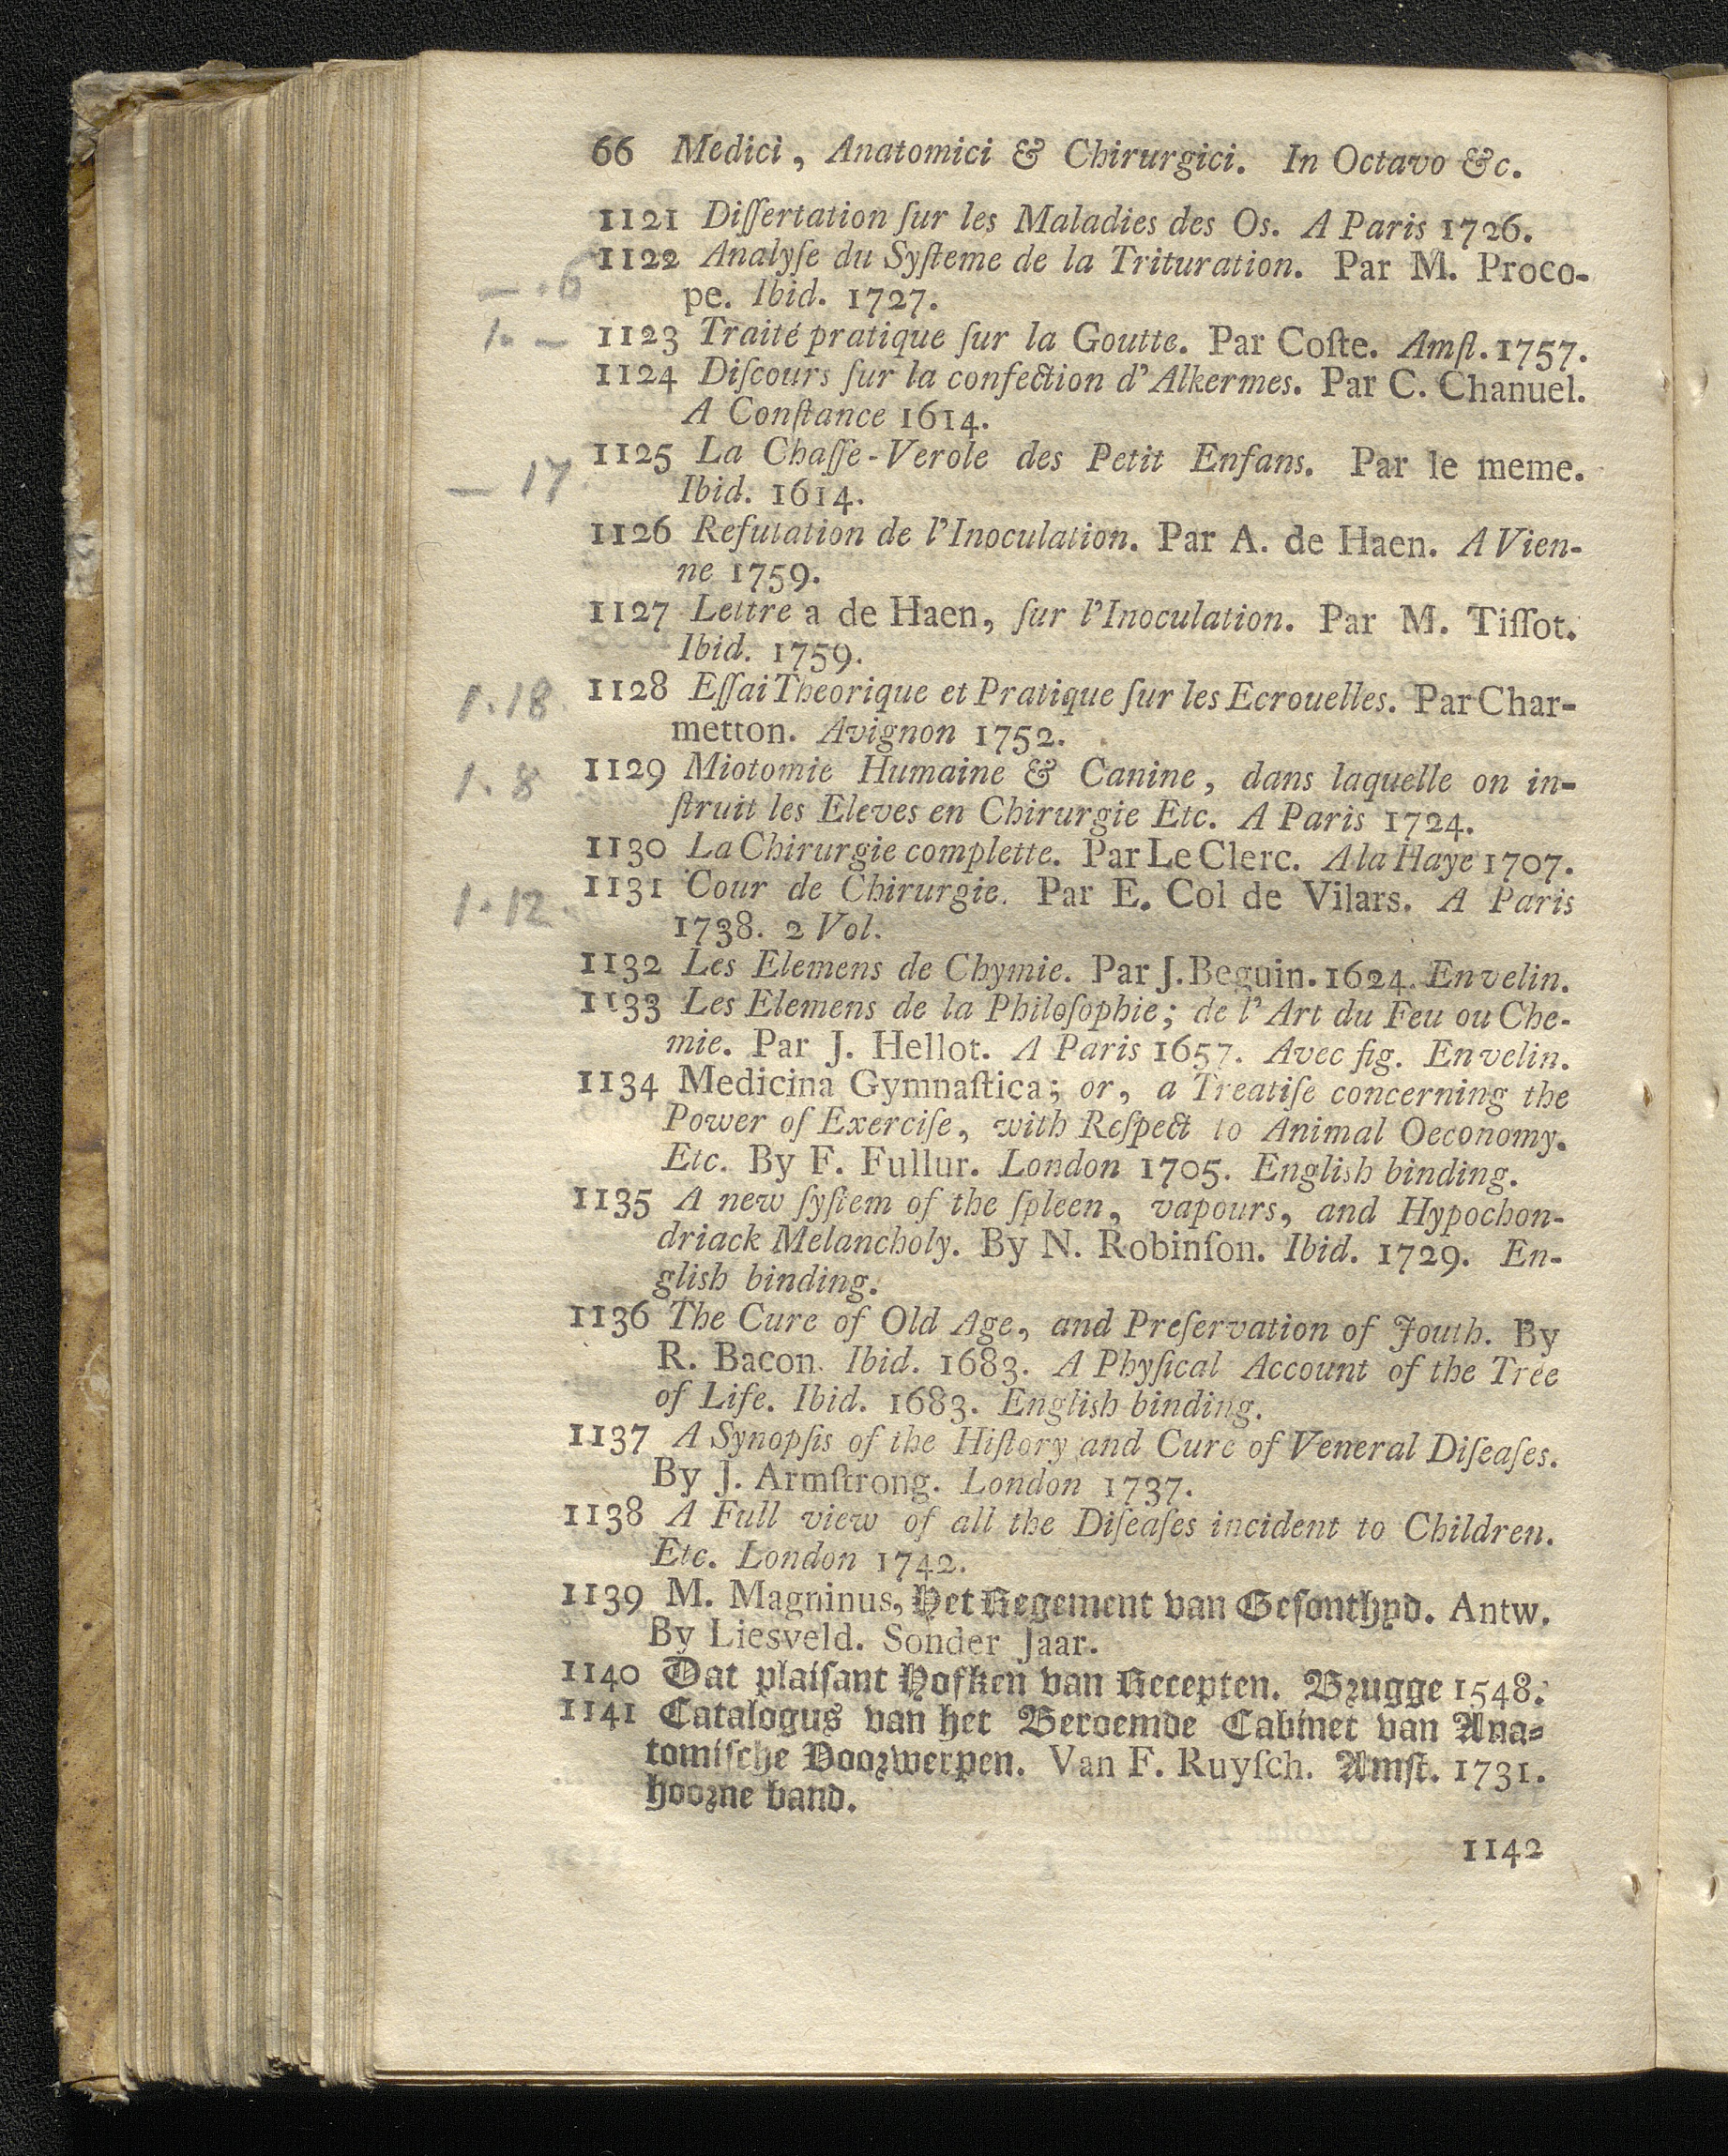 66 Medici, Anatomici & Chirurgici. In Octavo &c.
1121 Diſſertation ſur les Maladies des Os. A Paris 1726.
— . 6 1122 Analyſe du Syſteme de la Trituration. Par M. Proco-
pe. Ibid. 1727.
1. — 1123 Traité pratique ſur la Goutte. Par Coſte. Amſt. 1757.
1124 Diſcours ſur la confection d'Alkermes. Par C. Chanuel.
A Conſtance 1614.
— 17 1125 La Chaſſe-Verole des Petit Enfans. Par le meme.
Ibid. 1614.
1126 Refutation de l'Inoculation. Par A. de Haen. A Vien-
ne 1759.
1127 Lettre a de Haen, ſur l'Inoculation. Par M. Tiſſot.
Ibid. 1759.
1.18. 1128 Eſſai Theorique et Pratique ſur les Ecrouelles. Par Char-
metton. Avignon 1752.
1. 8 1129 Miotomie Humaine & Canine, dans laquelle on in-
ſtruit les Eleves en Chirurgie Etc. A Paris 1724.
1130 La Chirurgie complette. Par Le Clerc. A la Haye 1707.
1.12. 1131 Cour de Chirurgie. Par E. Col de Vilars. A Paris
1738. 2 Vol.
1132 Les Elemens de Chymie. Par J. Beguin. 1624. En velin.
1133 Les Elemens de la Philoſophie; de l'Art du Feu ou Che-
mie. Par J. Hellot. A Paris 1657. Avec fig. En velin.
1134 Medicina Gymnaſtica; or, a Treatiſe concerning the
Power of Exerciſe, with Reſpect to Animal Oeconomy.
Etc. By F. Fullur. London 1705. English binding.
1135 A new ſyſtem of the ſpleen, vapours, and Hypochon-
driack Melancholy. By N. Robinſon. Ibid. 1729. En-
glish binding.
1136 The Cure of Old Age, and Preſervation of Jouth. By
R. Bacon. Ibid. 1683. A Phyſical Account of the Tree
of Life. Ibid. 1683. English binding.
1137 A Synopſis of the Hiſtory and Cure of Veneral Diſeaſes.
By J. Armſtrong. London 1737.
1138 A Full view of all the Diſeaſes incident to Children.
Etc. London 1742.
1139 M. Magninus, Het Regement van Geſonthyd. Antw.
By Liesveld. Sonder Jaar.
1140 Dat plaiſant Hofken van Recepten. Brugge 1548.
1141 Catalogus van het Beroemde Cabinet van Ana-
tomiſche Voorwerpen. Van F. Ruyſch. Amſt. 1731.
hoorne band.
1142